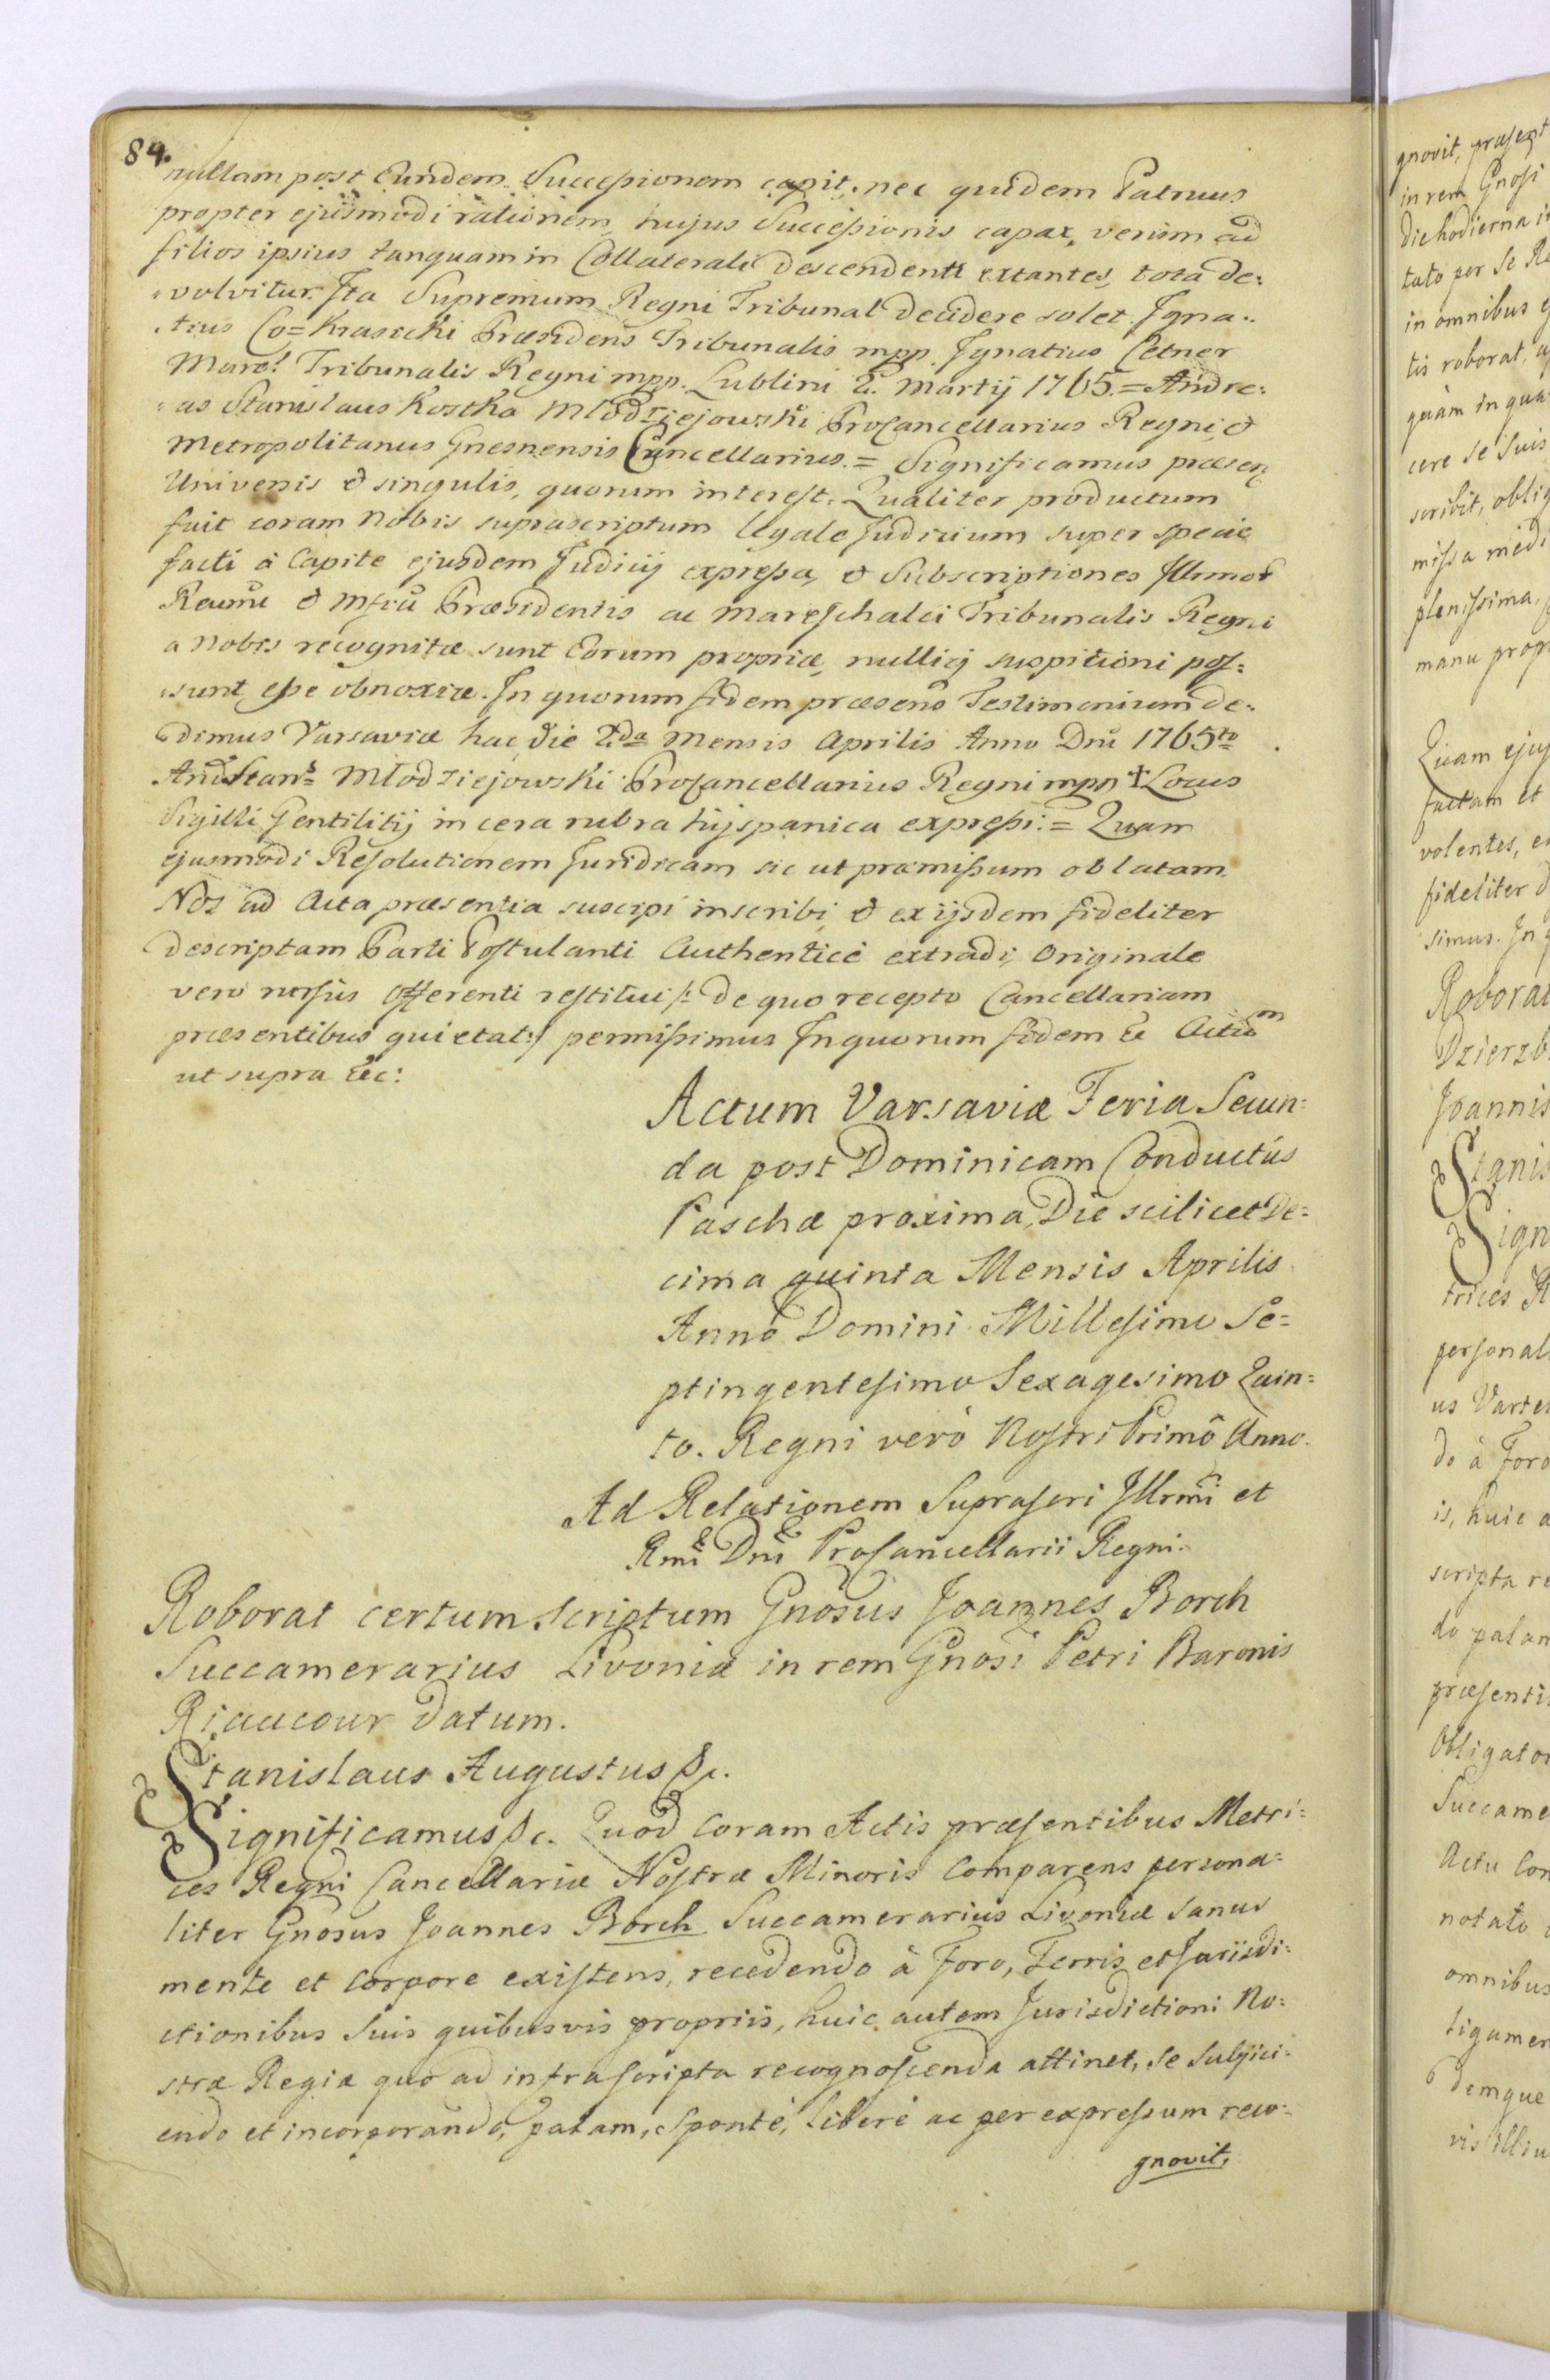 84.
nullam post Eundem Successionem capit, nec quidem Patruus
propter ejusmodi rationem, hujus Successionis capax, verum ad
filios ipsius tanquam in Collaterali descendenti extantes, tota de:
:volvitur. Ita Supremum Regni Tribunal decidere solet. Igna:
:tius Co=Krasicki Præsidens Tribunalis mpp. Ignatius Cetner
Marc! Tribunalis Regni mpp. Lublini 2. Martij 1765.=Andre:
:as Stanislaus Kostka Młodziejowski ProCancellarius Regni, &
Metropolitanus Gnesnensis Cancellarius.= Significamus præsen
Universis & singulis, quorum interest. Qualiter productum
fuit coram Nobis suprascriptum legale Judicium super specie
facti à Capite ejusdem Judicij expressa, & Subscriptiones Illrmor
& Præsidentis ac Mareschalci Tribunalis Regni
a Nobis recognitæ sunt Eorum propriæ, nulliq suspitioni pos:
:sunt esse obnoxiæ. In quorum fidem præsens Testimonium de:
dimus Varsaviæ hac die 2da Mensis Aprilis Anno Dni 1765to
And Stans Młodziejowski ProCancellarius Regni mpp Locus
Sigilli Gentilitij in cera rubra hijspanica expressi.= Quam
ejusmodi Resolutionem Juridicam sic ut præmissum oblatam
Nos ad Acta præsentia suscipi inscribi & ex ijsdem fideliter
descriptam Parti Postulanti Authenticè extradi, Originale
vero rursùs Offerenti restitui /: de quo recepto Cancellariam
præsentibus quietat:/ permissimus In quorum fidem &c Actum
ut supra &c:
Actum Varsaviæ Feria Secun:
da post Dominicam Conductûs
Paschæ proxima, Die scilicet De:
cima quinta Mensis Aprilis
Anno Domini Millesimo Se=
ptingentesimo Sexagesimo Quin:
to. Regni verò Nostri Primô Anno.
Ad Relationem Suprascri Illrmi et
Rmi Dni ProCancellarii Regni.
Roborat certum scriptum Gnosus Joannes Borch
Succamerarius Livoniæ in rem Gnosi Petri Baronis
Riaucour datum.
Stanislaus Augustus &c.
Significamus &c. Quod Coram Actis præsentibus Metri:
ces Regni Cancellariæ Nostræ Minoris Comparens persona:
liter Gnosus Joannes Borch Succamerarius Livoniæ Sanus
mente et Corpore existens, recedendo à Foro, Terris et Jurisdi:
ctionibus Suis quibusvis propriis, huic autem Jurisdictioni No:
stræ Regiæ quo ad infrascripta recognoscenda attinet, Se Subjici:
endo et incorporando, palam, Spontè, liberè ac per expressum reco:
gnovit,
gnovit, præsent
in rem Gnosi
die hodierna
tato per Se
in omnibus
tis roborat,
quàm in
cere se suis
scribit,
missa
plenissima,
manu
Quam
factam et
volentes,
fideliter
simus. In
Roborat
Joannis
Stanis
Sign
trices
personal
us
do à Foro
is, huic
scripta
do palam
præsenti
Obligator
Succame
Actu
notato
omnibus
demque